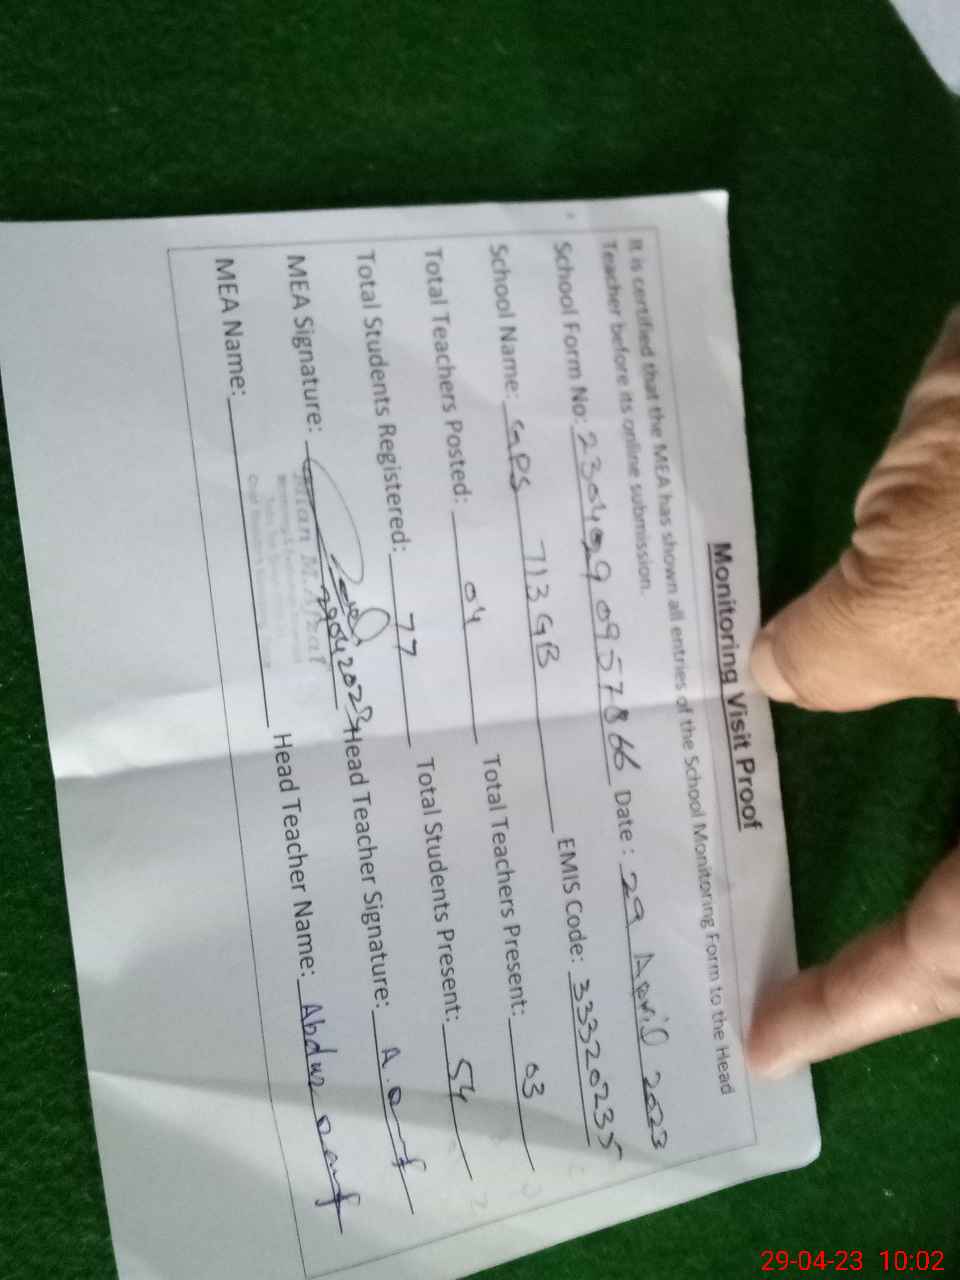 Monitoring Visit Proof
It is certified that the MEA has shown all entries of the School Monitoring Form to the Head
Teacher before its online submission.
School Form No: 2304029 0957866 Date : 29 April 2023
School Name: GPS 713 GB EMIS Code: 33320235
Total Teachers Posted: 04 Total Teachers Present: 03
Total Students Registered: 77 Total Students Present: 54
MEA Signature: Head Teacher Signature: A.
MEA Name: Head Teacher Name: Abdur
29-04-23 10:02